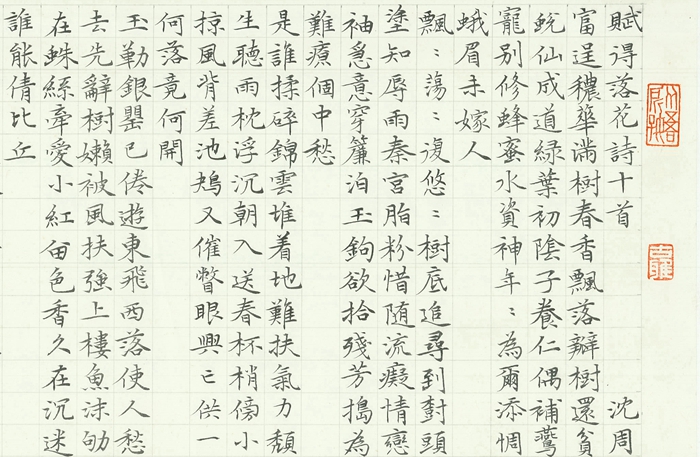 賦得落花詩十首 沈周
富逞穠華滿樹春香飄落瓣樹還貧
蛻仙成道綠葉初陰子養仁偶補鷰
寵別修蜂蜜水資神年〻為爾添惆
蛾眉未嫁人
飄〻蕩〻復悠〻樹底追尋到樹頭
塗知辱雨秦宮脂粉惜隨流癡情戀
袖急意穿簾泊玉鉤欲拾殘芳搗為
難療個中愁
是誰揉碎錦雲堆着地難扶氣力頹
生聽雨枕浮沉朝入送春杯梢傍小
掠風背差池鴂又催瞥眼興亡供一
何落竟何開
玉勒銀罌已倦遊東飛西落使人愁
去先辭樹嬾被風扶強上樓魚沫劬
在蛛絲牽愛小紅留色香久在沉迷
誰能倩比丘